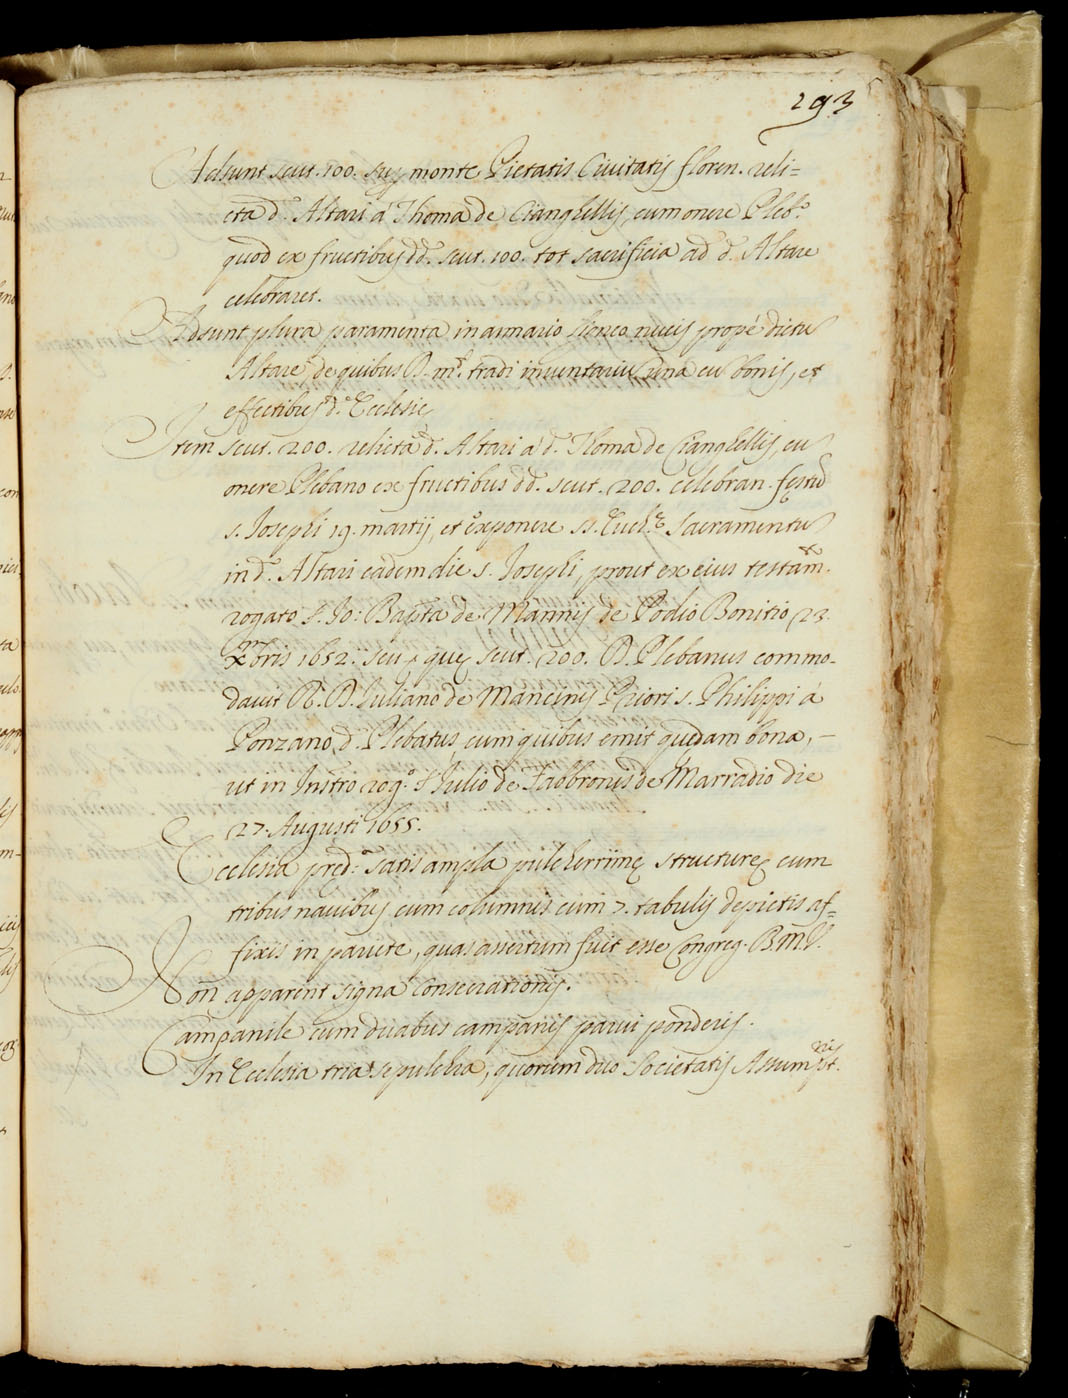 293
Adsunt scut. 100. sup monte Pietatis Ciuitatis floren. reli=
cta d. Altari á Thoma de Cianghellis, cum onere Pleb.o
quod ex fructibus dd. scut. 100. tot sacrificia ad d. Altare
celebraret.
Adsunt plura paramenta in armario ligneo nucis propé dictu
Altare, de quibus D. m.t tradi inuentariu una cu bonis, et
effectibus d.e Ecclesie
Item scut. 200. relicta d. Altari á d. Thoma de Cianghellis, cu
onere Plebano ex fructibus dd. scut. 200. celebran. festu
s. Josephi 19. martij, et exponere ss. Euch.e Sacramentu
in d. Altari eadem die s. Josephi, prout ex eius testam.
rogato s. Jo: Bapta de Mannis de Podio Bonitio 23.
Xbris 1652. seu que scut. 200. D. Plebanus commo-
dauit R. D. Juliano de Mancinis Priori s. Philippi á
Ponzano, d. Plebatus, cum quibus emit quedam bona, —
ut in Instro rog.o s. Julio de Fabbronis de Marradio die
27. Augusti 1655.
Ecclesia pred.a satis ampla pulcherrime structure cum
tribus nauibus cum columnis cum 7. tabulis depictis af=
fixis in pariete, quas assertum fuit esse Congreg. B.M.V.
Non apparent signa Consecrationis.
Campanile cum duabus campanis parui ponderis.
In Ecclesia tria sepulchra, quorum duo Societatis Assumpt.nis